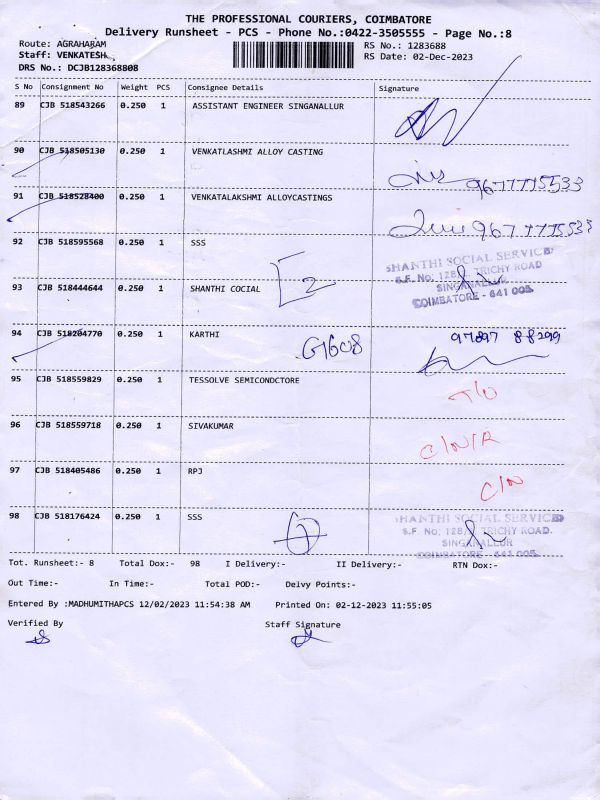 THE PROFESSIONAL COURIERS, COIMBATORE
Delivery Runsheet - PCS - Phone No.:0422-3505555 - Page No.:8
Route: AGRAHARAM
RS No.: 1283688
Staff: VENKATESH
RS Date: 02-Dec-2023
DRS No.: DCJB128368808
S No Consignment No Weight PCS Consignee Details Signature
89 CJB 518543266 0.250 1 ASSISTANT ENGINEER SINGANALLUR
90 CJB 518505130 0.250 1 VENKATLASHMI ALLOY CASTING
9677775533
91 CJB 518528400 0.250 1 VENKATALAKSHMI ALLOYCASTINGS
9677775533
92 CJB 518595568 0.250 1 SSS
SHANTHI SOCIAL SERVICES
S.F. No. 128/ TRICHY ROAD
93 CJB 518444644 0.250 1 SHANTHI COCIAL
SINGANALLUR
COIMBATORE - 641 005
94 CJB 518204770 0.250 1 KARTHI
97897 88299
G1608
95 CJB 518559829 0.250 1 TESSOLVE SEMICONDCTORE
96 CJB 518559718 0.250 1 SIVAKUMAR
C/N/R
97 CJB 518405486 0.250 1 RPJ
C/N
98 CJB 518176424 0.250 1 SSS
SHANTHI SOCIAL SERVICES
S.F. No. 128/ TRICHY ROAD
SINGANALLUR
COIMBATORE - 641 005
Tot. Runsheet:- 8 Total Dox:- 98 I Delivery:- II Delivery:- RTN Dox:-
Out Time:- In Time:- Total POD:- Delvy Points:-
Entered By :MADHUMITHAPCS 12/02/2023 11:54:38 AM Printed On: 02-12-2023 11:55:05
Verified By Staff Signature